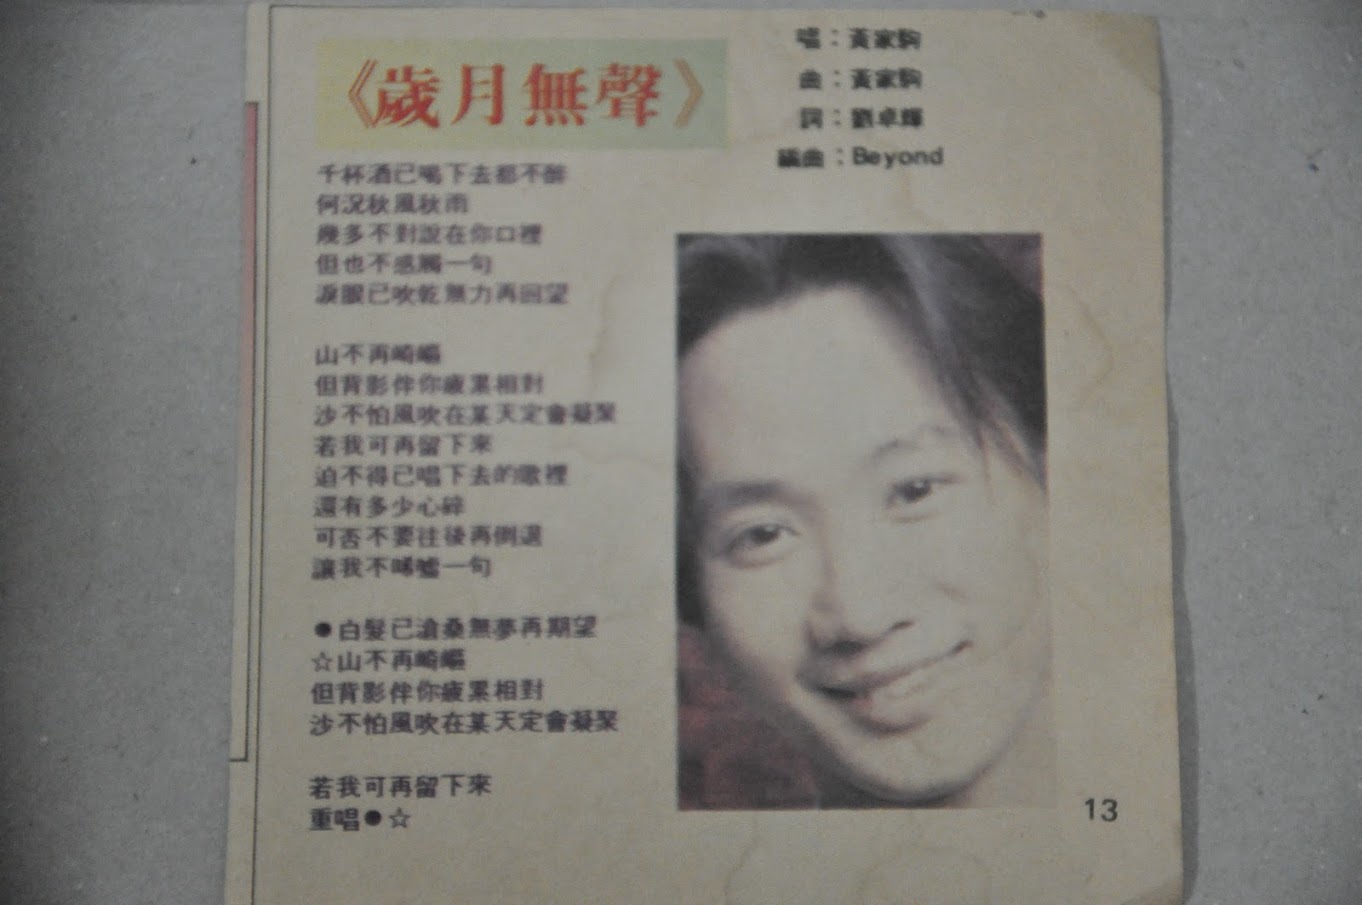 《歲月無聲》
唱：黃家駒
曲：黃家駒
詞：劉卓輝
編曲：Beyond
千杯酒已喝下去都不醉
何況秋風秋雨
幾多不對說在你口裡
但也不感觸一句
淚眼已吹乾無力再回望
山不再崎嶇
但背影伴你疲累相對
沙不怕風吹在某天定會凝聚
若我可再留下來
迫不得已唱下去的歌裡
還有多少心碎
可否不要往後再倒退
讓我不唏噓一句
●白髮已滄桑無夢再期望
☆山不再崎嶇
但背影伴你疲累相對
沙不怕風吹在某天定會凝聚
若我可再留下來
重唱●☆
13